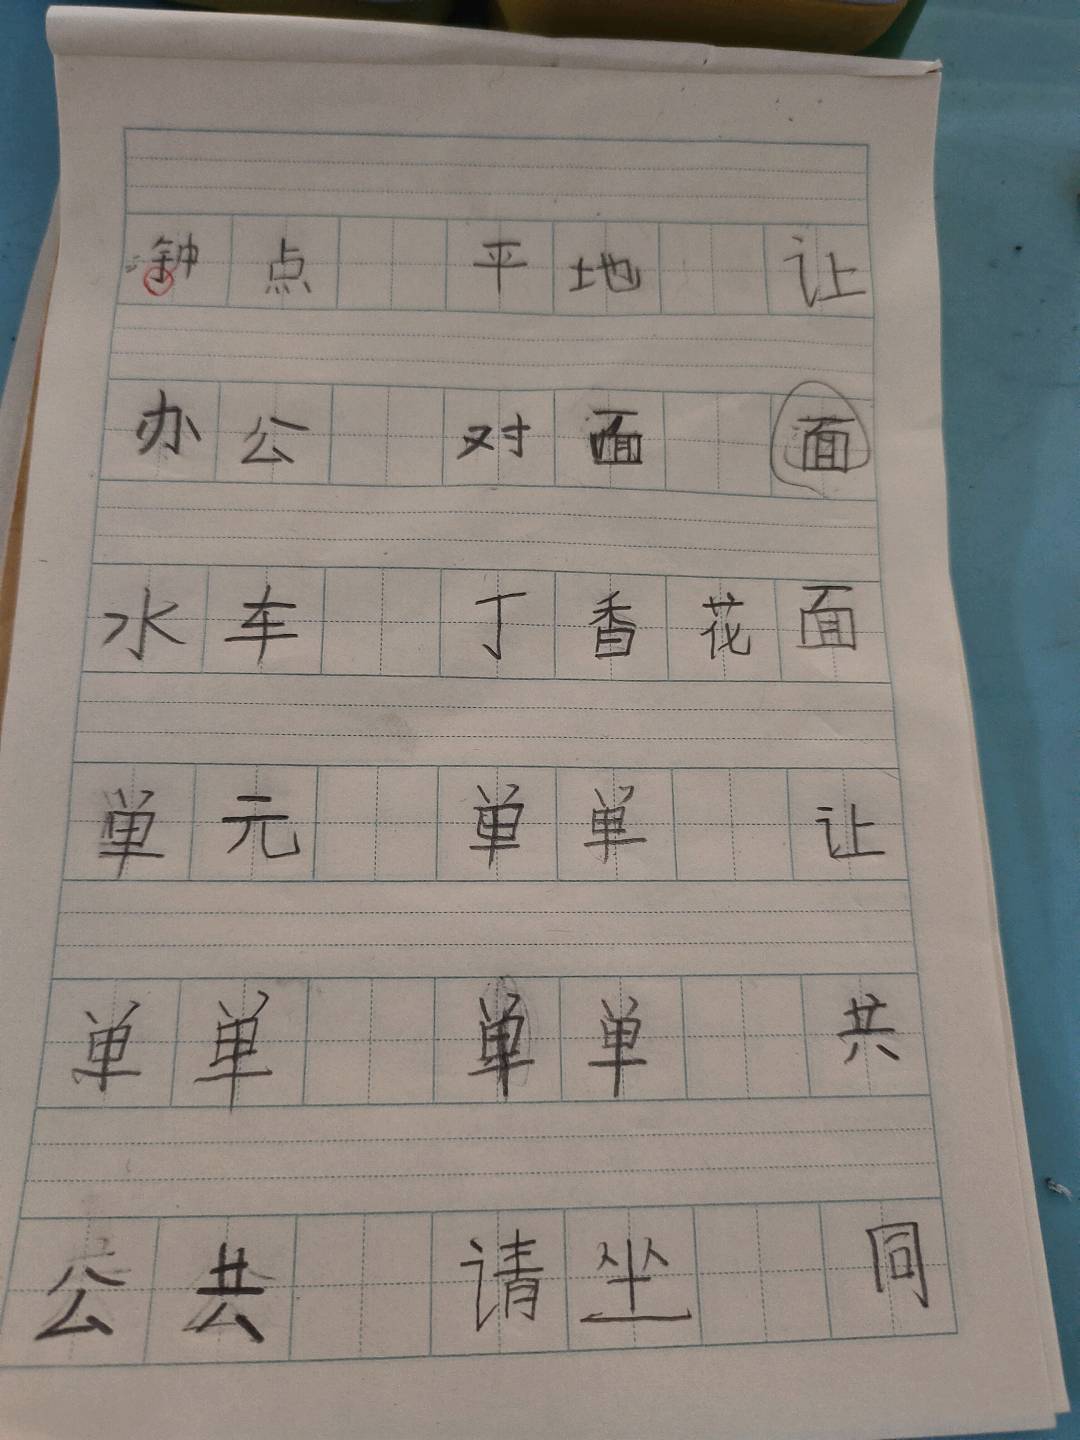 钟点 平地 让
办公 对面 面
水车 丁香花面
单元 单单 让
单单 单单 共
公共 请坐 同